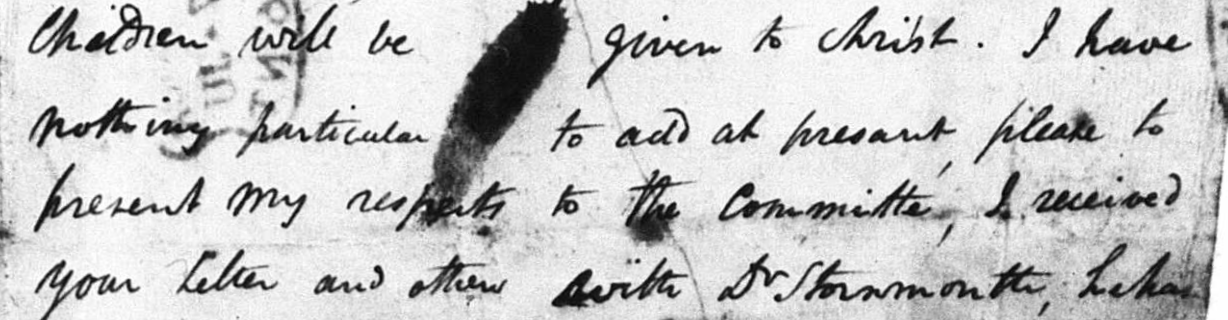 Children will be given to Christ. I have
nothing particular to add at presant, please to
present my respects to the Committe, I received
your Letter and others with Dr Stornmonth, he has